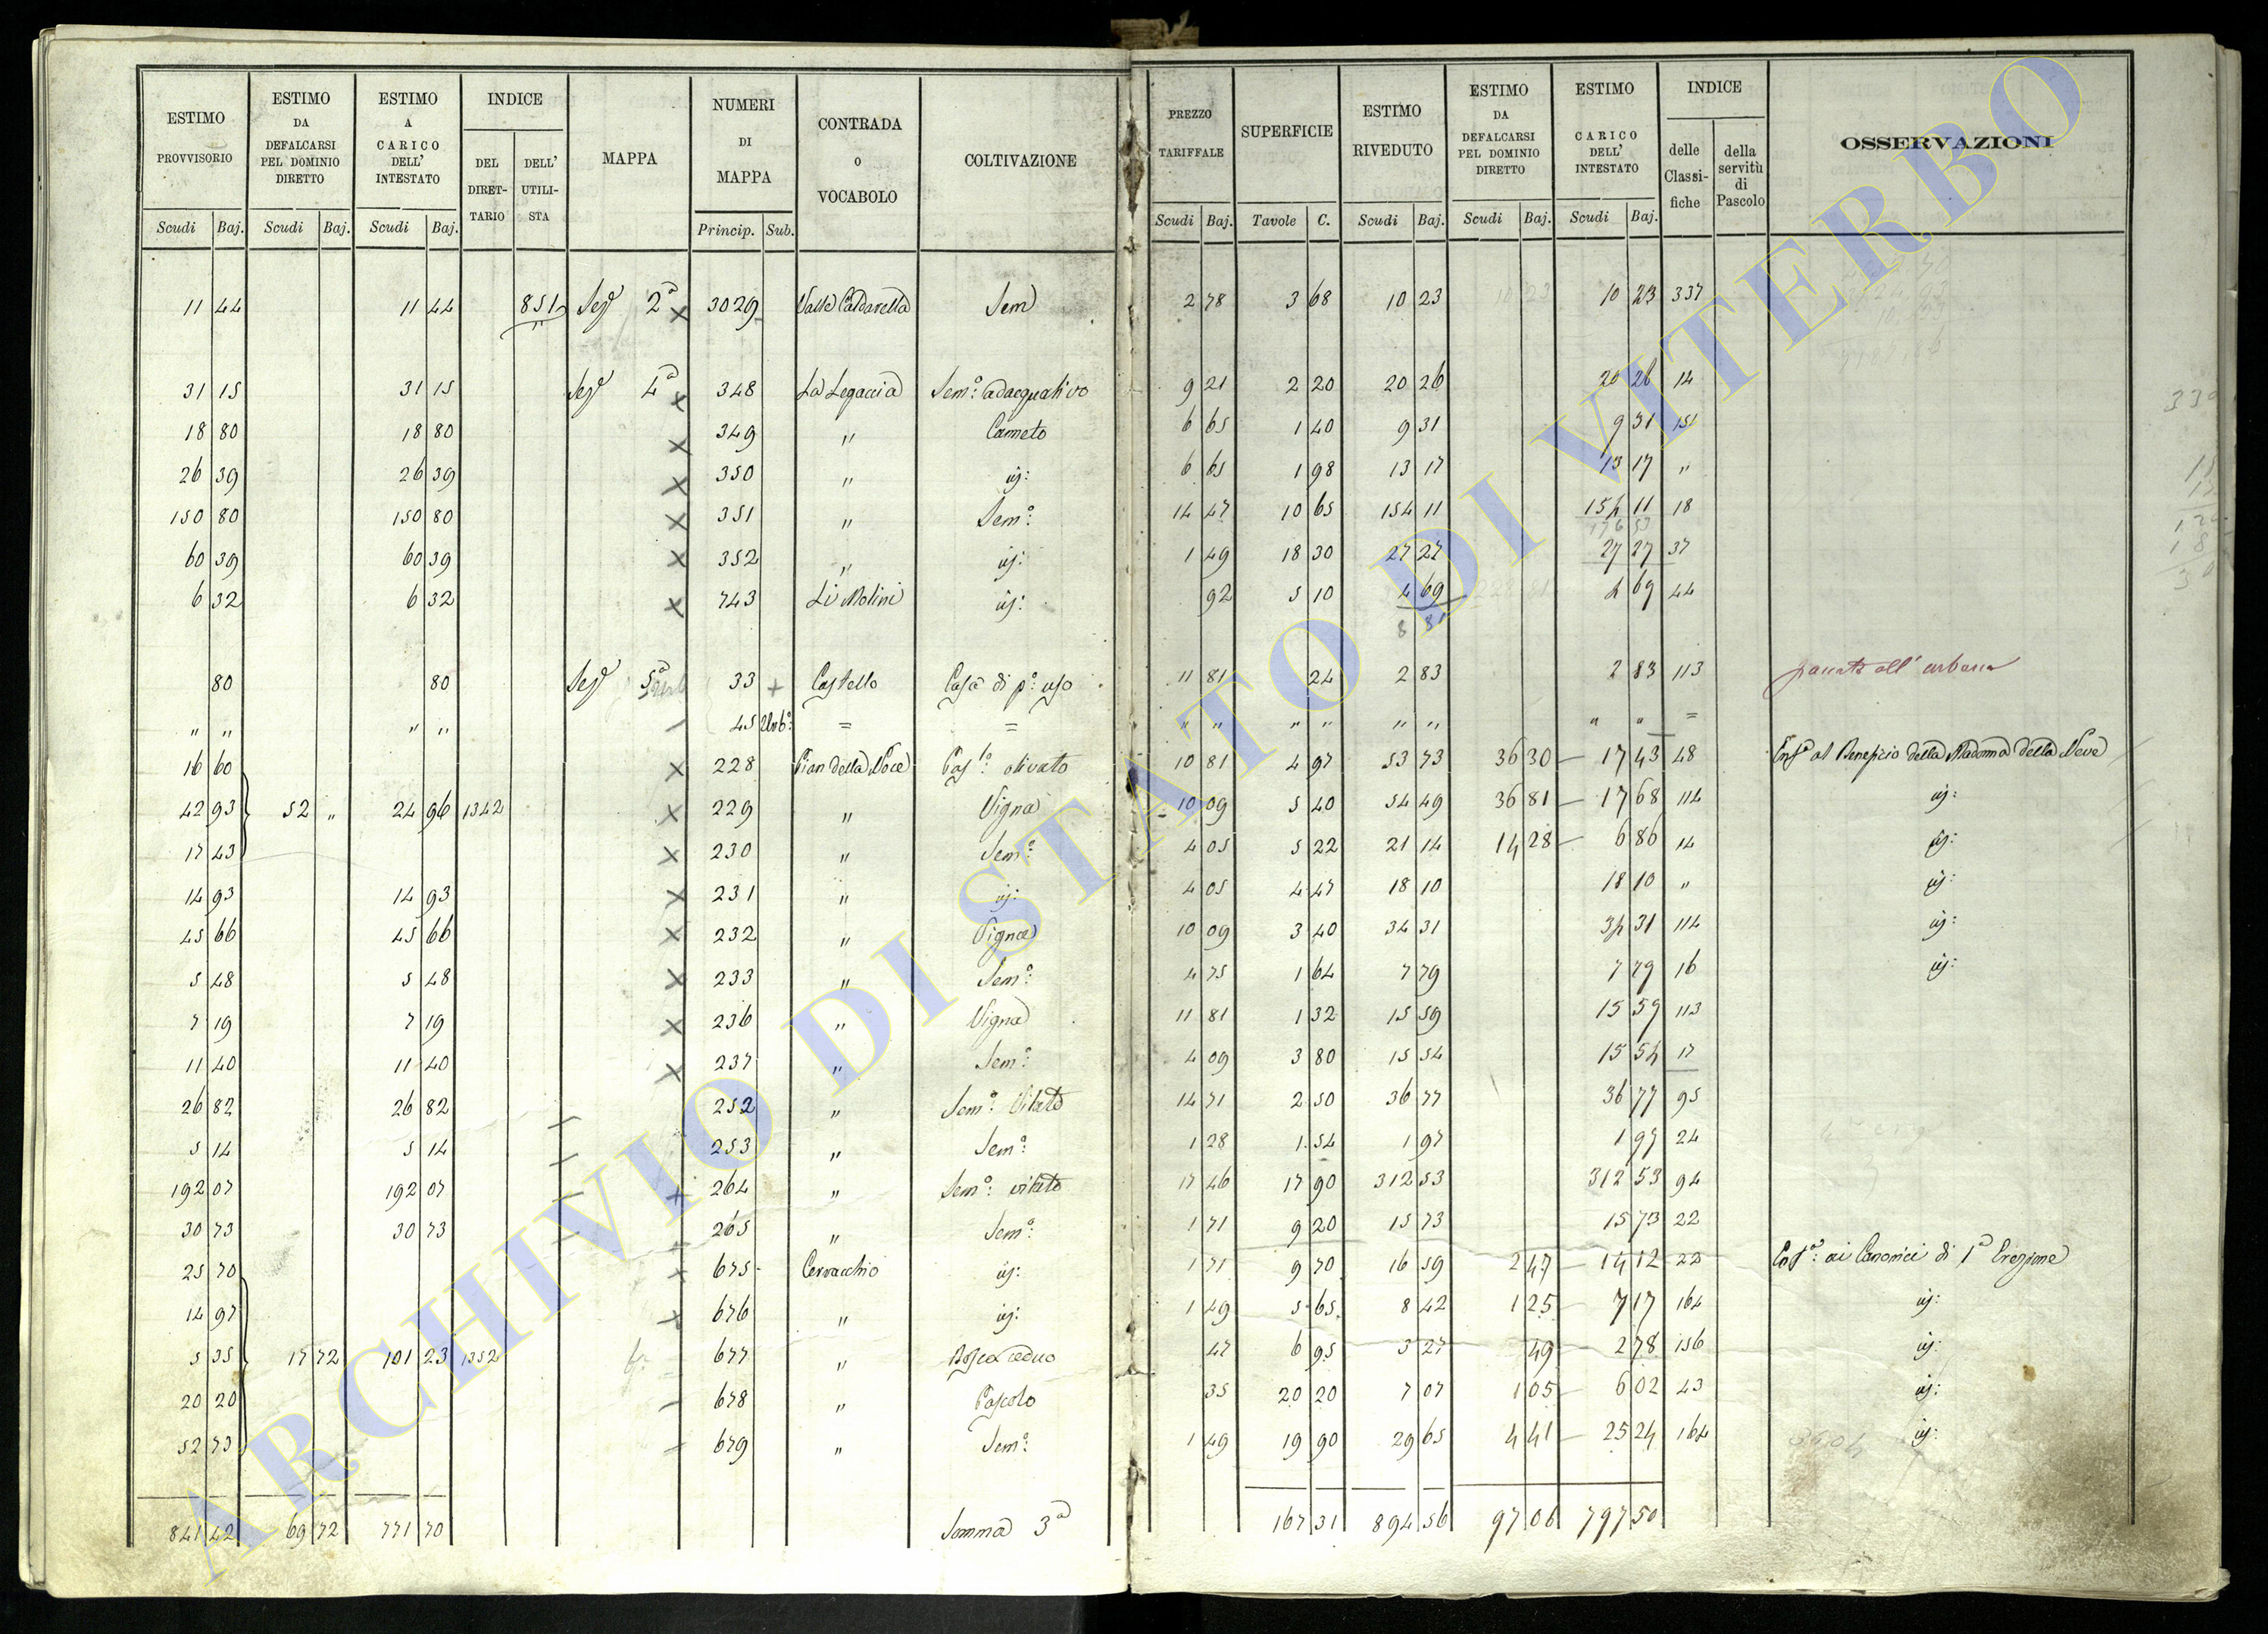 ESTIMO PROVVISORIO | ESTIMO DA DEFALCARSI PEL DOMINIO DIRETTO | ESTIMO A CARICO DELL' INTESTATO | INDICE | MAPPA | NUMERI DI MAPPA | CONTRADA O VOCABOLO | COLTIVAZIONE | PREZZO TARIFFALE | SUPERFICIE | ESTIMO RIVEDUTO | ESTIMO DA DEFALCARSI PEL DOMINIO DIRETTO | ESTIMO CARICO DELL' INTESTATO | INDICE | OSSERVAZIONI
DEL DIRETTARIO | DELL' UTILISTA | delle Classifiche | della servitù di Pascolo
Scudi | Baj. | Scudi | Baj. | Scudi | Baj. | Princip. | Sub. | Scudi | Baj. | Tavole | C. | Scudi | Baj. | Scudi | Baj. | Scudi | Baj.
11 44 | 11 44 | 851 | Sez 2ª x | 3029 | Valle Caldarella | Sem | 2 78 | 3 68 | 10 23 | 10 23 | 337
31 15 | 31 15 | Sez 4ª x | 348 | La Legaccia | Sem:º adacquativo | 9 21 | 2 20 | 20 26 | 20 26 | 14
18 80 | 18 80 | x | 349 | " | Canneto | 6 65 | 1 40 | 9 31 | 9 31 | 151
26 39 | 26 39 | x | 350 | " | id: | 6 65 | 1 98 | 13 17 | 13 17 | "
150 80 | 150 80 | x | 351 | " | Sem:º | 14 47 | 10 65 | 154 11 | 154 11 | 18
176 53
60 39 | 60 39 | x | 352 | " | id: | 1 49 | 18 30 | 27 27 | 27 27 | 37
6 32 | 6 32 | x | 743 | Li Molini | id: | 92 | 5 10 | 4 69 | 4 69 | 44
8 81
80 | 80 | Sez 5ª | 33 + | Castello | Casa di pº: uso | 11 81 | 24 | 2 83 | 2 83 | 113 | passato all' urbano
" " | " " | 45 Urbº: | = | = | " " | " " | " " | " " | =
16 60 | x | 228 | Pian della Noce | Pasº: olivato | 10 81 | 4 97 | 53 73 | 36 30 | 17 43 | 48 | Enfª al Beneficio della Madonna della Neve
42 93 | 52 " | 24 96 | 1342 | x | 229 | " | Vigna | 10 09 | 5 40 | 54 49 | 36 81 | 17 68 | 114 | id:
17 43 | x | 230 | " | Sem:º | 4 05 | 5 22 | 21 14 | 14 28 | 6 86 | 14 | id:
14 93 | 14 93 | x | 231 | " | id: | 4 05 | 4 47 | 18 10 | 18 10 | " | id:
45 66 | 45 66 | x | 232 | " | Vigna | 10 09 | 3 40 | 34 31 | 34 31 | 114 | id:
5 48 | 5 48 | x | 233 | " | Sem:º | 4 75 | 1 64 | 7 79 | 7 79 | 16 | id:
7 19 | 7 19 | x | 236 | " | Vigna | 11 81 | 1 32 | 15 59 | 15 59 | 113
11 40 | 11 40 | x | 237 | " | Sem:º | 4 09 | 3 80 | 15 54 | 15 54 | 17
26 82 | 26 82 | 252 | " | Sem:º Vitato | 14 71 | 2 50 | 36 77 | 36 77 | 95
5 14 | 5 14 | 253 | " | Sem:º | 1 28 | 1 54 | 1 97 | 1 97 | 24
192 07 | 192 07 | + | 264 | " | Sem:º vitato | 17 46 | 17 90 | 312 53 | 312 53 | 94
30 73 | 30 73 | 265 | " | Sem:º | 1 71 | 9 20 | 15 73 | 15 73 | 22
25 70 | 675 | Cervacchio | id: | 1 71 | 9 70 | 16 59 | 2 47 | 14 12 | 22 | Enfª: ai Canonici di 1ª Erezione
14 97 | 676 | " | id: | 1 49 | 5 65 | 8 42 | 1 25 | 7 17 | 164 | id:
5 35 | 17 72 | 101 23 | 1352 | 677 | " | Bosco ceduo | 47 | 6 95 | 3 27 | 49 | 2 78 | 156 | id:
20 20 | 678 | " | Pascolo | 35 | 20 20 | 7 07 | 1 05 | 6 02 | 43 | id:
52 73 | 679 | " | Sem:º | 1 49 | 19 90 | 29 65 | 4 41 | 25 24 | 164 | id:
841 42 | 69 72 | 771 70 | Somma 3ª | 167 31 | 894 56 | 97 06 | 797 50
ARCHIVIO DI STATO DI VITERBO